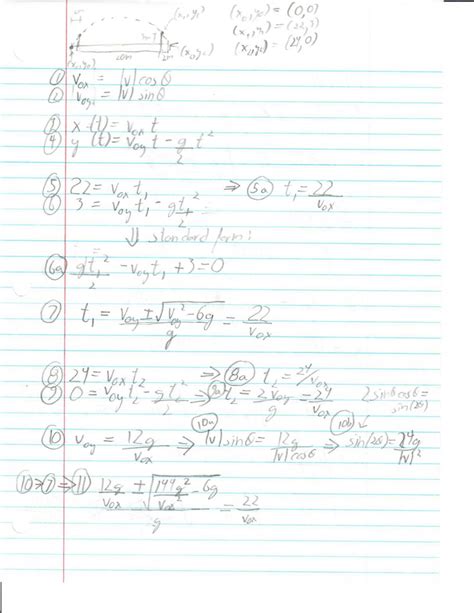 (x₀,y₀) = (0,0)
(x₁,y₁) = (22,3)
(x₂,y₂) = (24,0)
(x₁,y₁)
(x₂,y₂)
(x₀,y₀)
20m
2m
① v₀ₓ = |v|cosθ
② v₀y = |v|sinθ
③ x(t) = v₀ₓt
④ y(t) = v₀yt - gt²/2
⑤ 22 = v₀ₓt₁ ⇒ (5a) t₁ = 22/v₀ₓ
⑥ 3 = v₀yt₁ - gt₁²/2
⇓ standard form:
(6a) gt₁²/2 - v₀yt₁ + 3 = 0
⑦ t₁ = (v₀y ± √(v₀y² - 6g))/g = 22/v₀ₓ
⑧ 24 = v₀ₓt₂ ⇒ (8a) t₂ = 24/v₀ₓ
⑨ 0 = v₀yt₂ - gt₂²/2 ⇒ (9a) t₂ = 2v₀y/g = 24/v₀ₓ 2sinθcosθ = sin(2θ)
⑩ v₀y = 12g/v₀ₓ ⇒ (10a) |v|sinθ = 12g/|v|cosθ ⇒ (10b) sin(2θ) = 24g/|v|²
⑩→⑦ ⇒ ⑪ (12g/v₀ₓ ± √(144g²/v₀ₓ² - 6g))/g = 22/v₀ₓ